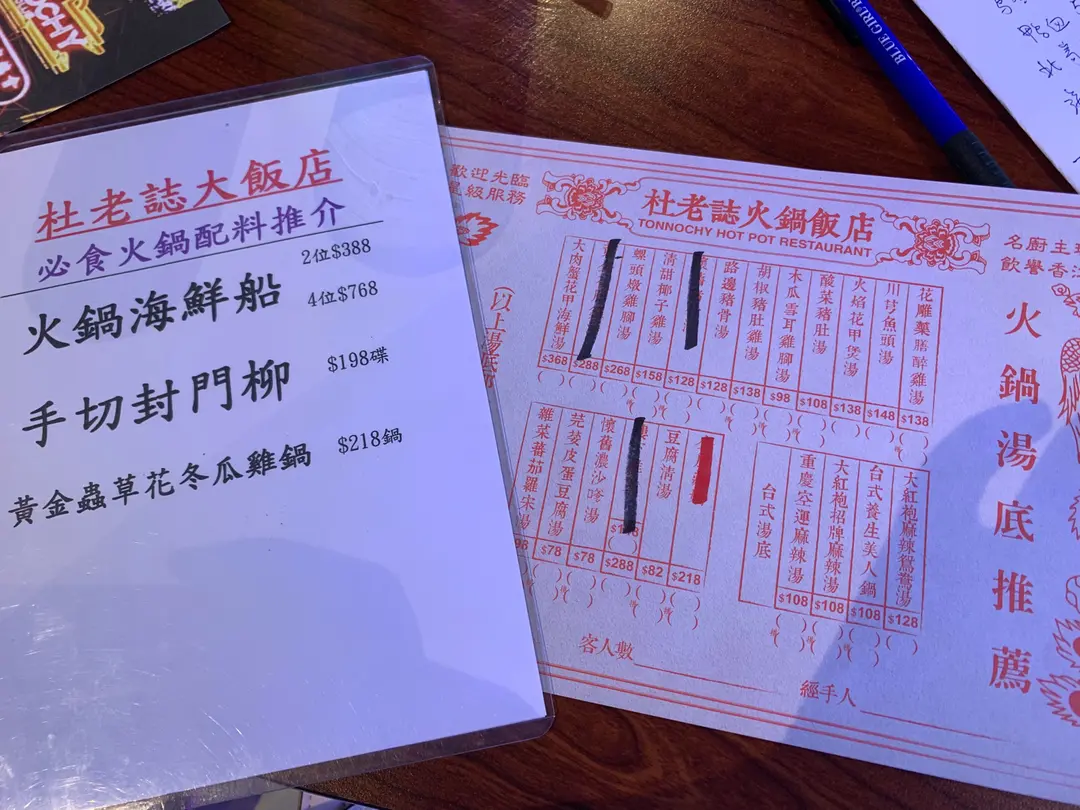 杜老誌大飯店
必食火鍋配料推介
火鍋海鮮船
2位$388
4位$768
手切封門柳
$198碟
黃金蟲草花冬瓜雞鍋
$218鍋
BLUE GIRL
杜老誌火鍋飯店
TONNOCHY HOT POT RESTAURANT
歡迎光臨
星級服務
火鍋湯底推薦
花雕藥膳醉雞湯
$138
川芎魚頭湯
$148
火焰花甲煲湯
$138
酸菜豬肚湯
$108
木瓜雪耳雞腳湯
$98
胡椒豬肚雞湯
$138
路邊豬骨湯
$128
$128
清甜椰子雞湯
$158
螺頭燉雞腳湯
$268
$288
大肉蟹花甲海鮮湯
$368
大紅袍麻辣鴛鴦湯
$128
台式養生美人鍋
$108
大紅袍招牌麻辣湯
$108
重慶空運麻辣湯
$108
台式湯底
$218
豆腐清湯
$82
$288
懷舊濃沙嗲湯
$78
芫荽皮蛋豆腐湯
$78
雜菜蕃茄羅宋湯
(以上湯底
客人數
經手人